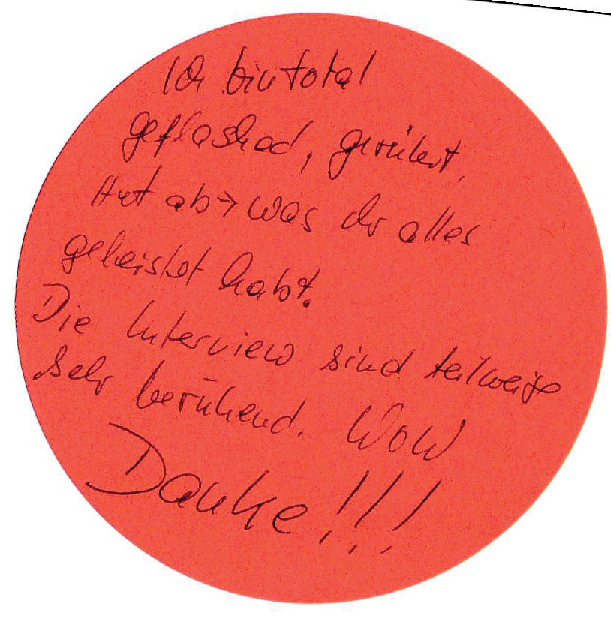 Ich bin total
geflashed, gerührt.
Hut ab → was ihr alles
geleistet habt.
Die Interview sind teilweise
sehr berührend. WoW
Danke!!!